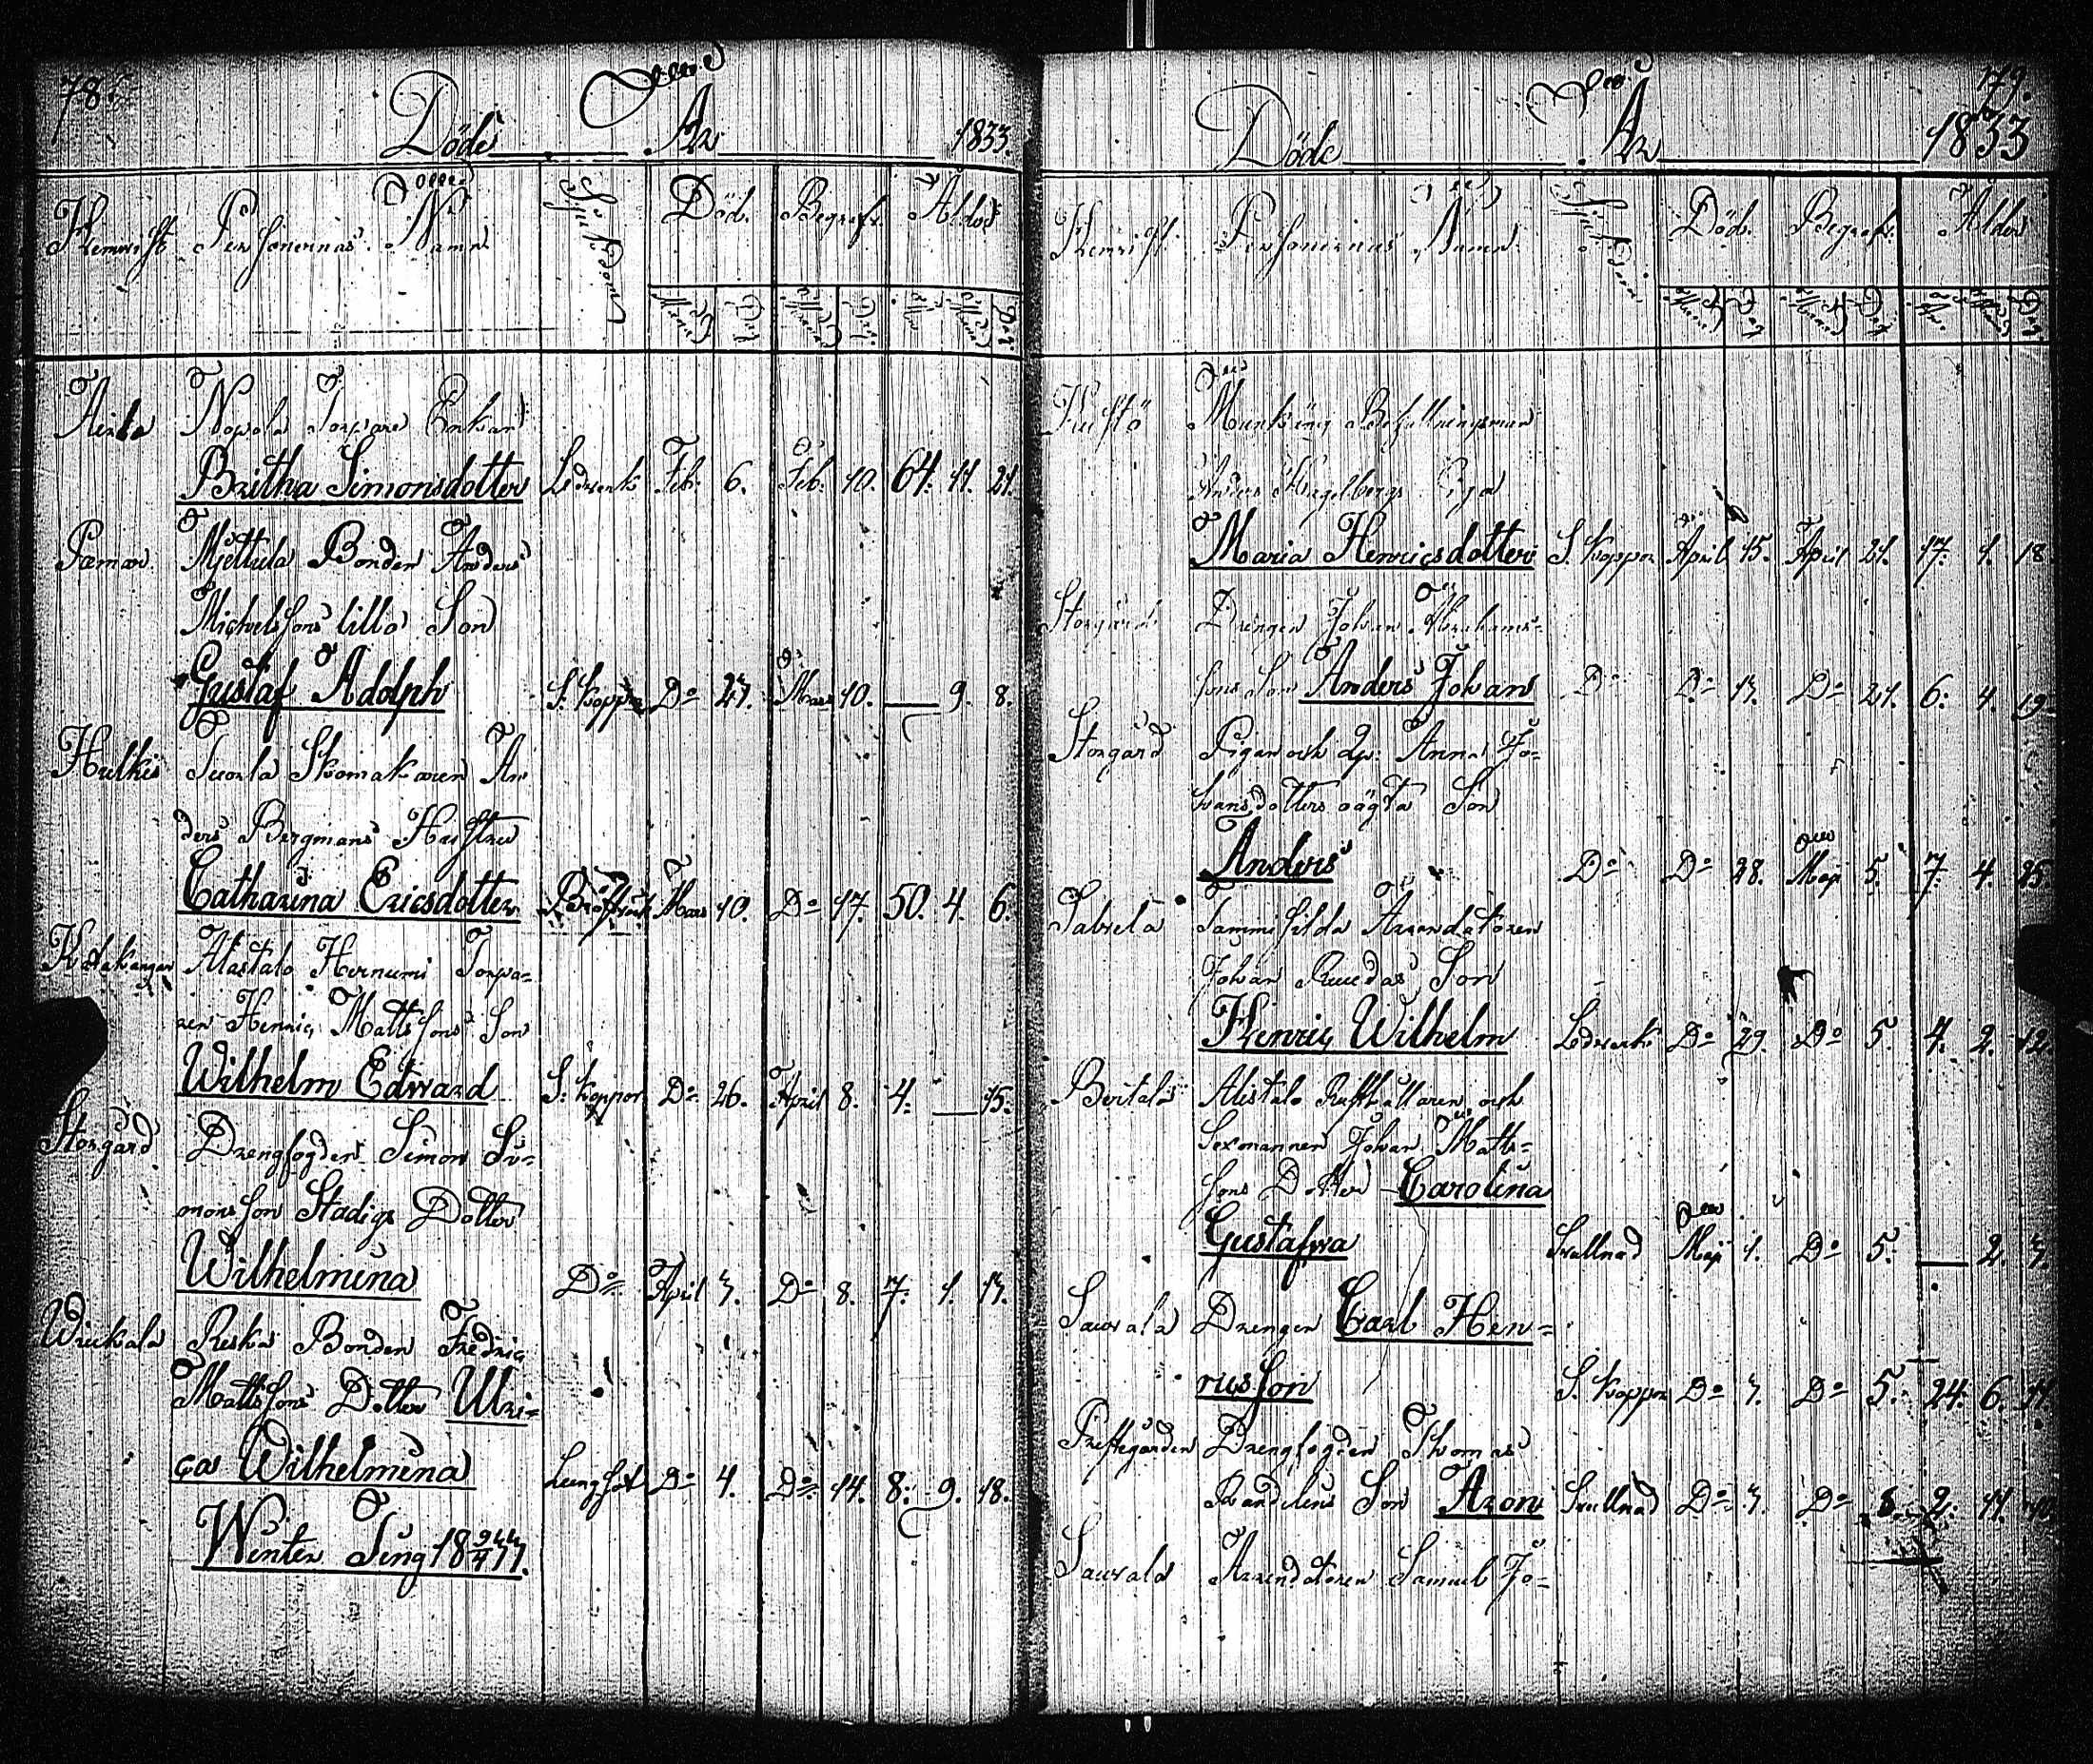 78.
Döde År 1833.
Hemvist Personernas Namn Sjukdom Död. Begrafn. Ålder
Månad Dag Månad Dag År Månad Dag
Nopola Torpare Enkan
Britha Simonsdotter Ledverk Feb. 6. Feb. 10. 64. 11. 21.
Pemar Mjettula Bonden Anders
Michelssons lilla Son
Gustaf Adolph S. Koppor Do 27. Mars 10. — 9. 8.
Hulkis Tuorla Skomakaren An
ders Bergmans Hustru
Catharina Ericsdotter Bröstsjuk Mars 10. Do 17. 50. 4. 6.
Alastalo Hernumi Torpa-
ren Henric Mattssons Son
Wilhelm Edward S. Koppor Do 26. April 8. 4. — 15.
Storgård Drengfogden Simon Si-
monsson Stadigs Dotter
Wilhelmina Do April 3. Do 8. 7. 1. 13.
Wiukala Reska Bonden Fredric
Mattssons Dotter Ulri-
ca Wilhelmina Lungsot Do 4. Do 14. 8. 9. 18.
Winter Ting 18
179.
Döde År 1833
Hemvist. Personernas Namn. Sjukdom Död. Begrafn. Ålder
Månad Dag Månad Dag År Månad Dag
Kustö Munkäng Befallningsman
Anders Hagelbergs Piga
Maria Henricsdotter S. Koppor April 15. April 21. 17. 1. 18
Storgård Drengen Johan Abrahams-
sons Son Anders Johan Do Do 13. Do 21. 6. 4. 19
Storgård Pigan och Qp. Anna Jo-
hansdotters oägta Son
Anders Do Do 28. Maji 5. 7. 4. 25.
Tammisilda Arrendatoren
Johan Ruudas Son
Henric Wilhelm Ledverk Do 29. Do 5. 4. 2. 12.
Bertala Alistalo Rusthållaren och
Sexmannen Johan Matts-
sons Dotter Carolina
Gustafva Svullnad Maji 1. Do 5. — 2. 3.
Sauvala Drengen Carl Hen-
ricsson S. Koppor Do 3. Do 5. 24. 6.
Prestgården Drengfogden Thomas
Randelins Son Aron Svullnad Do 3. Do 2. 11.
Sauvala Arrendatoren Samuel Jo-